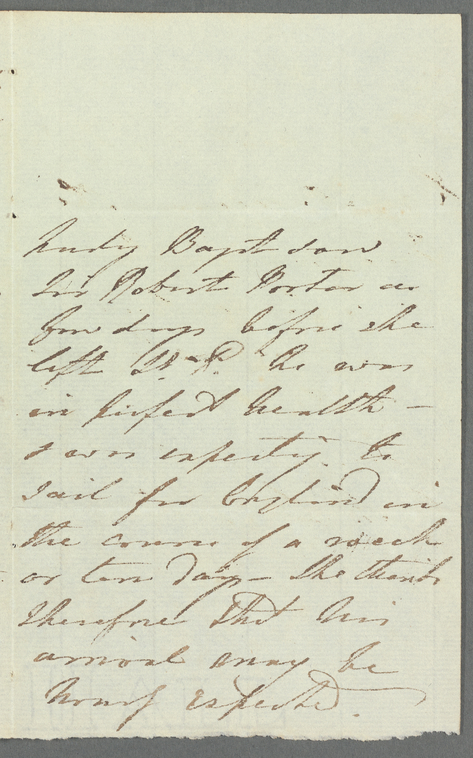 Lady Bagot saw
Sir Robert Porter a
few days before she
left St. P. he was
in perfect health –
& was expecting to
sail for England in
the course of a week
or ten days – She thinks
therefore that his
arrival may be
hourly expected.